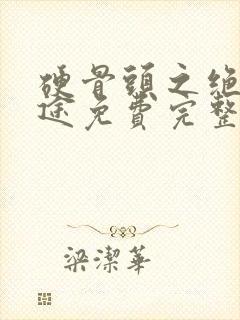 硬骨頭之绝
途免費完整
梁潔華